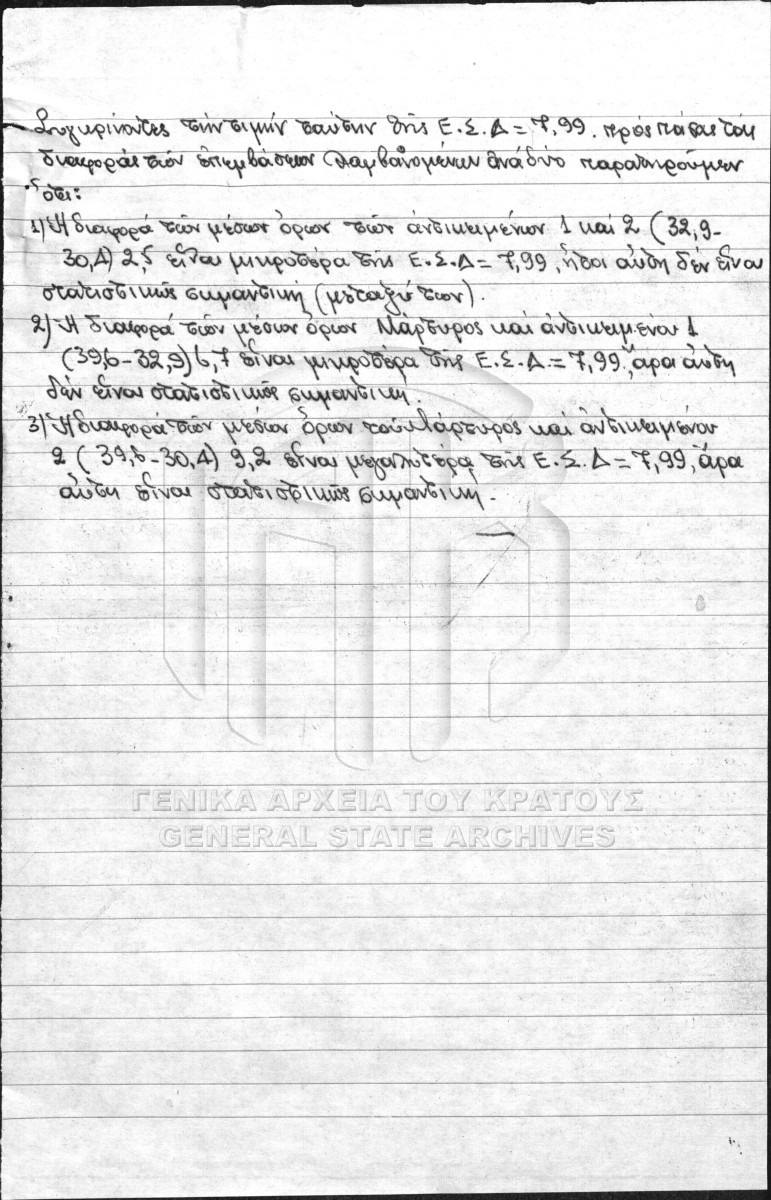 Συγκρίνοντες τήν τιμήν ταύτην τῆς Ε.Σ.Δ = 7,99. πρός πάσας τάς
διαφοράς τῶν ἐπεμβάσεων λαμβανομένων ἀνά δύο παρατηροῦμεν
ὅτι:
1) Ἡ διαφορά τῶν μέσων ὅρων τῶν ἀντικειμένων 1 καί 2 (32,9-
30,4) 2,5 εἶναι μικροτέρα τῆς Ε.Σ.Δ = 7,99, ἤτοι αὕτη δέν εἶναι
στατιστικῶς σημαντική (μεταξύ των).
2) Ἡ διαφορά τῶν μέσων ὅρων Μάρτυρος καί ἀντικειμένου 1
(39,6-32,9) 6,7 εἶναι μικροτέρα τῆς Ε.Σ.Δ. = 7,99, ἄρα αὕτη
δέν εἶναι στατιστικῶς σημαντική.
3) Ἡ διαφορά τῶν μέσων ὅρων τοῦ Μάρτυρος καί ἀντικειμένου
2 (39,6-30,4) 9,2 εἶναι μεγαλυτέρα τῆς Ε.Σ.Δ = 7,99, ἄρα
αὕτη εἶναι στατιστικῶς σημαντική.-
ΓΕΝΙΚΑ ΑΡΧΕΙΑ ΤΟΥ ΚΡΑΤΟΥΣ
GENERAL STATE ARCHIVES